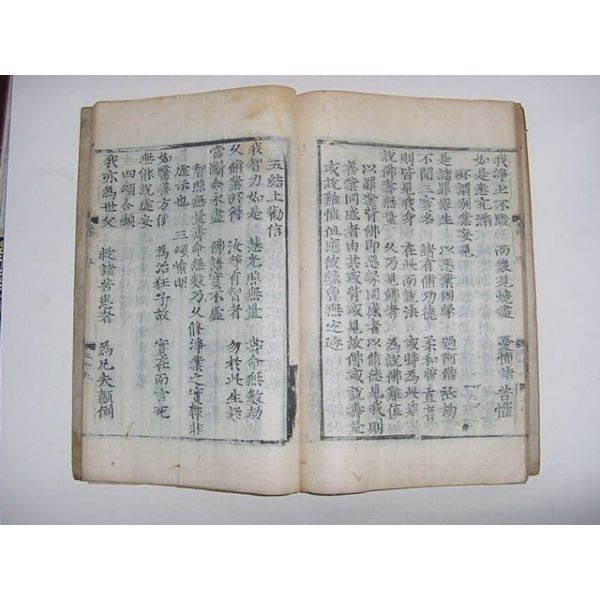 我淨土不毀　而衆見燒盡　憂怖諸苦惱
如是悉充滿
是諸罪衆生　以惡業因緣　過阿僧祇劫
不聞三寶名　諸有修功德　柔和質直者
則皆見我身　在此而說法　或時爲此衆
說佛壽無量　久乃見佛者　爲說佛難值
以罪業背佛即惡緣同感者以修德見我則
善業同感者由其或背或見故佛或說壽量
或說難值但應彼緣
五結上勸信
我智力如是　慧光照無量　壽命無數劫
久修業所得　汝等有智者　勿於此生疑
當斷令永盡　佛語實不虛
智照無量壽命無數乃久修淨業之實報非
虛示也　三頌
如醫善方便　爲治狂子故　實在而言死
無能說虛妄
四頌合顯
我亦爲世父　救諸苦患者　爲凡夫顛倒